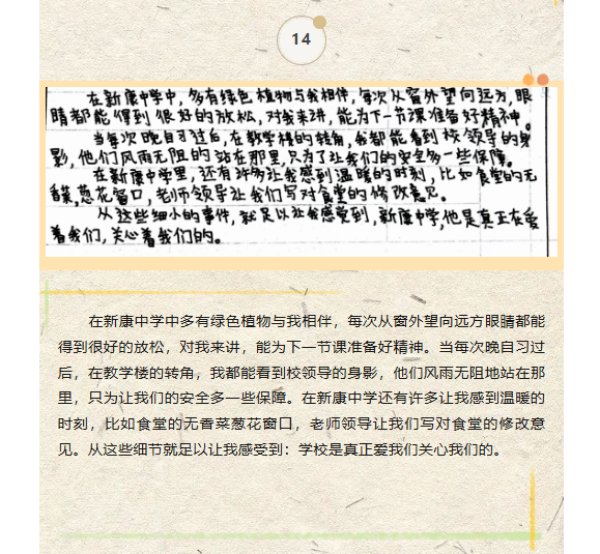 14
在新康中学中,多有绿色植物与我相伴,每次从窗外望向远方,眼
睛都能得到很好的放松,对我来讲,能为下一节课准备好精神。
当每次晚自习过后,在教学楼的转角,我都能看到校领导的身
影,他们风雨无阻的站在那里,只为了让我们的安全多一些保障。
在新康中学里,还有许多让我感到温暖的时刻,比如食堂的无
香菜,葱花窗口,老师领导让我们写对食堂的修改意见。
从这些细小的事件,就足以让我感觉到,新康中学,他是真正在爱
着我们,关心着我们的。
在新康中学中多有绿色植物与我相伴,每次从窗外望向远方眼睛都能
得到很好的放松,对我来讲,能为下一节课准备好精神。当每次晚自习过
后,在教学楼的转角,我都能看到校领导的身影,他们风雨无阻地站在那
里,只为让我们的安全多一些保障。在新康中学还有许多让我感到温暖的
时刻,比如食堂的无香菜葱花窗口,老师领导让我们写对食堂的修改意
见。从这些细节就足以让我感受到:学校是真正爱我们关心我们的。